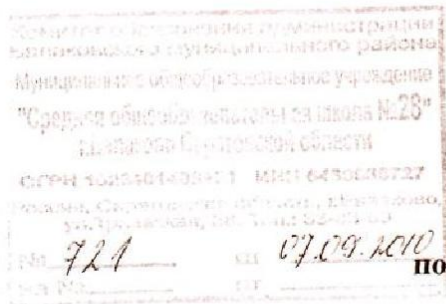 Комитет образования администрации
Балаковского муниципального района
Муниципальное общеобразовательное учреждение
"Средняя общеобразовательная школа №28"
г.Балаково Саратовской области
ОГРН ИНН
Россия, Саратовская область, г.Балаково,
№ 721 от 07.09.2010
На № от
по